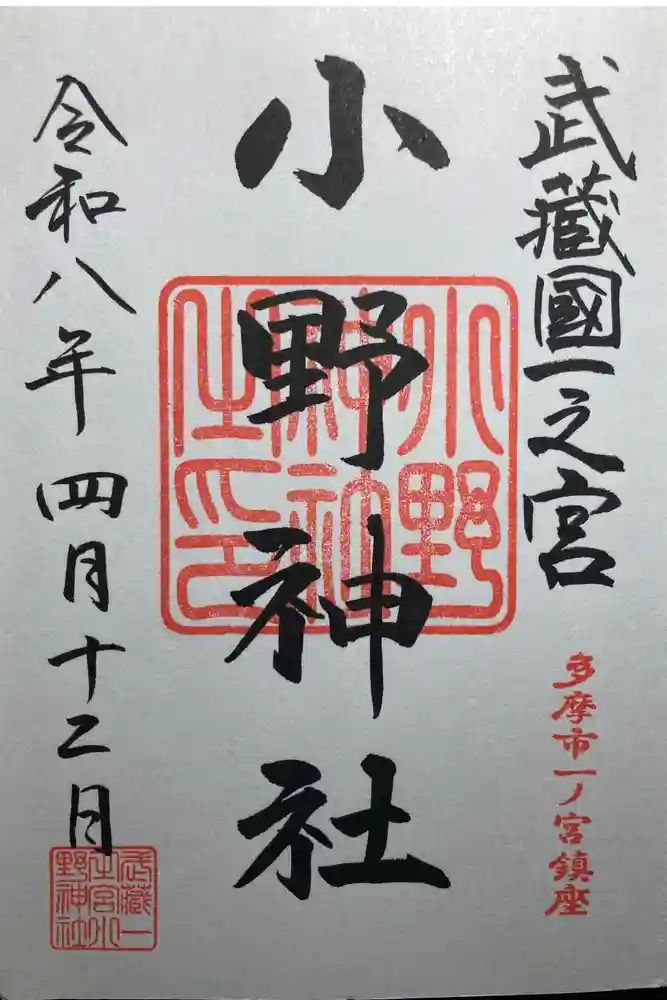 武蔵國一之宮
多摩市一ノ宮鎮座
小野神社
小野神社之印
令和八年四月十二日
武蔵一之宮小野神社